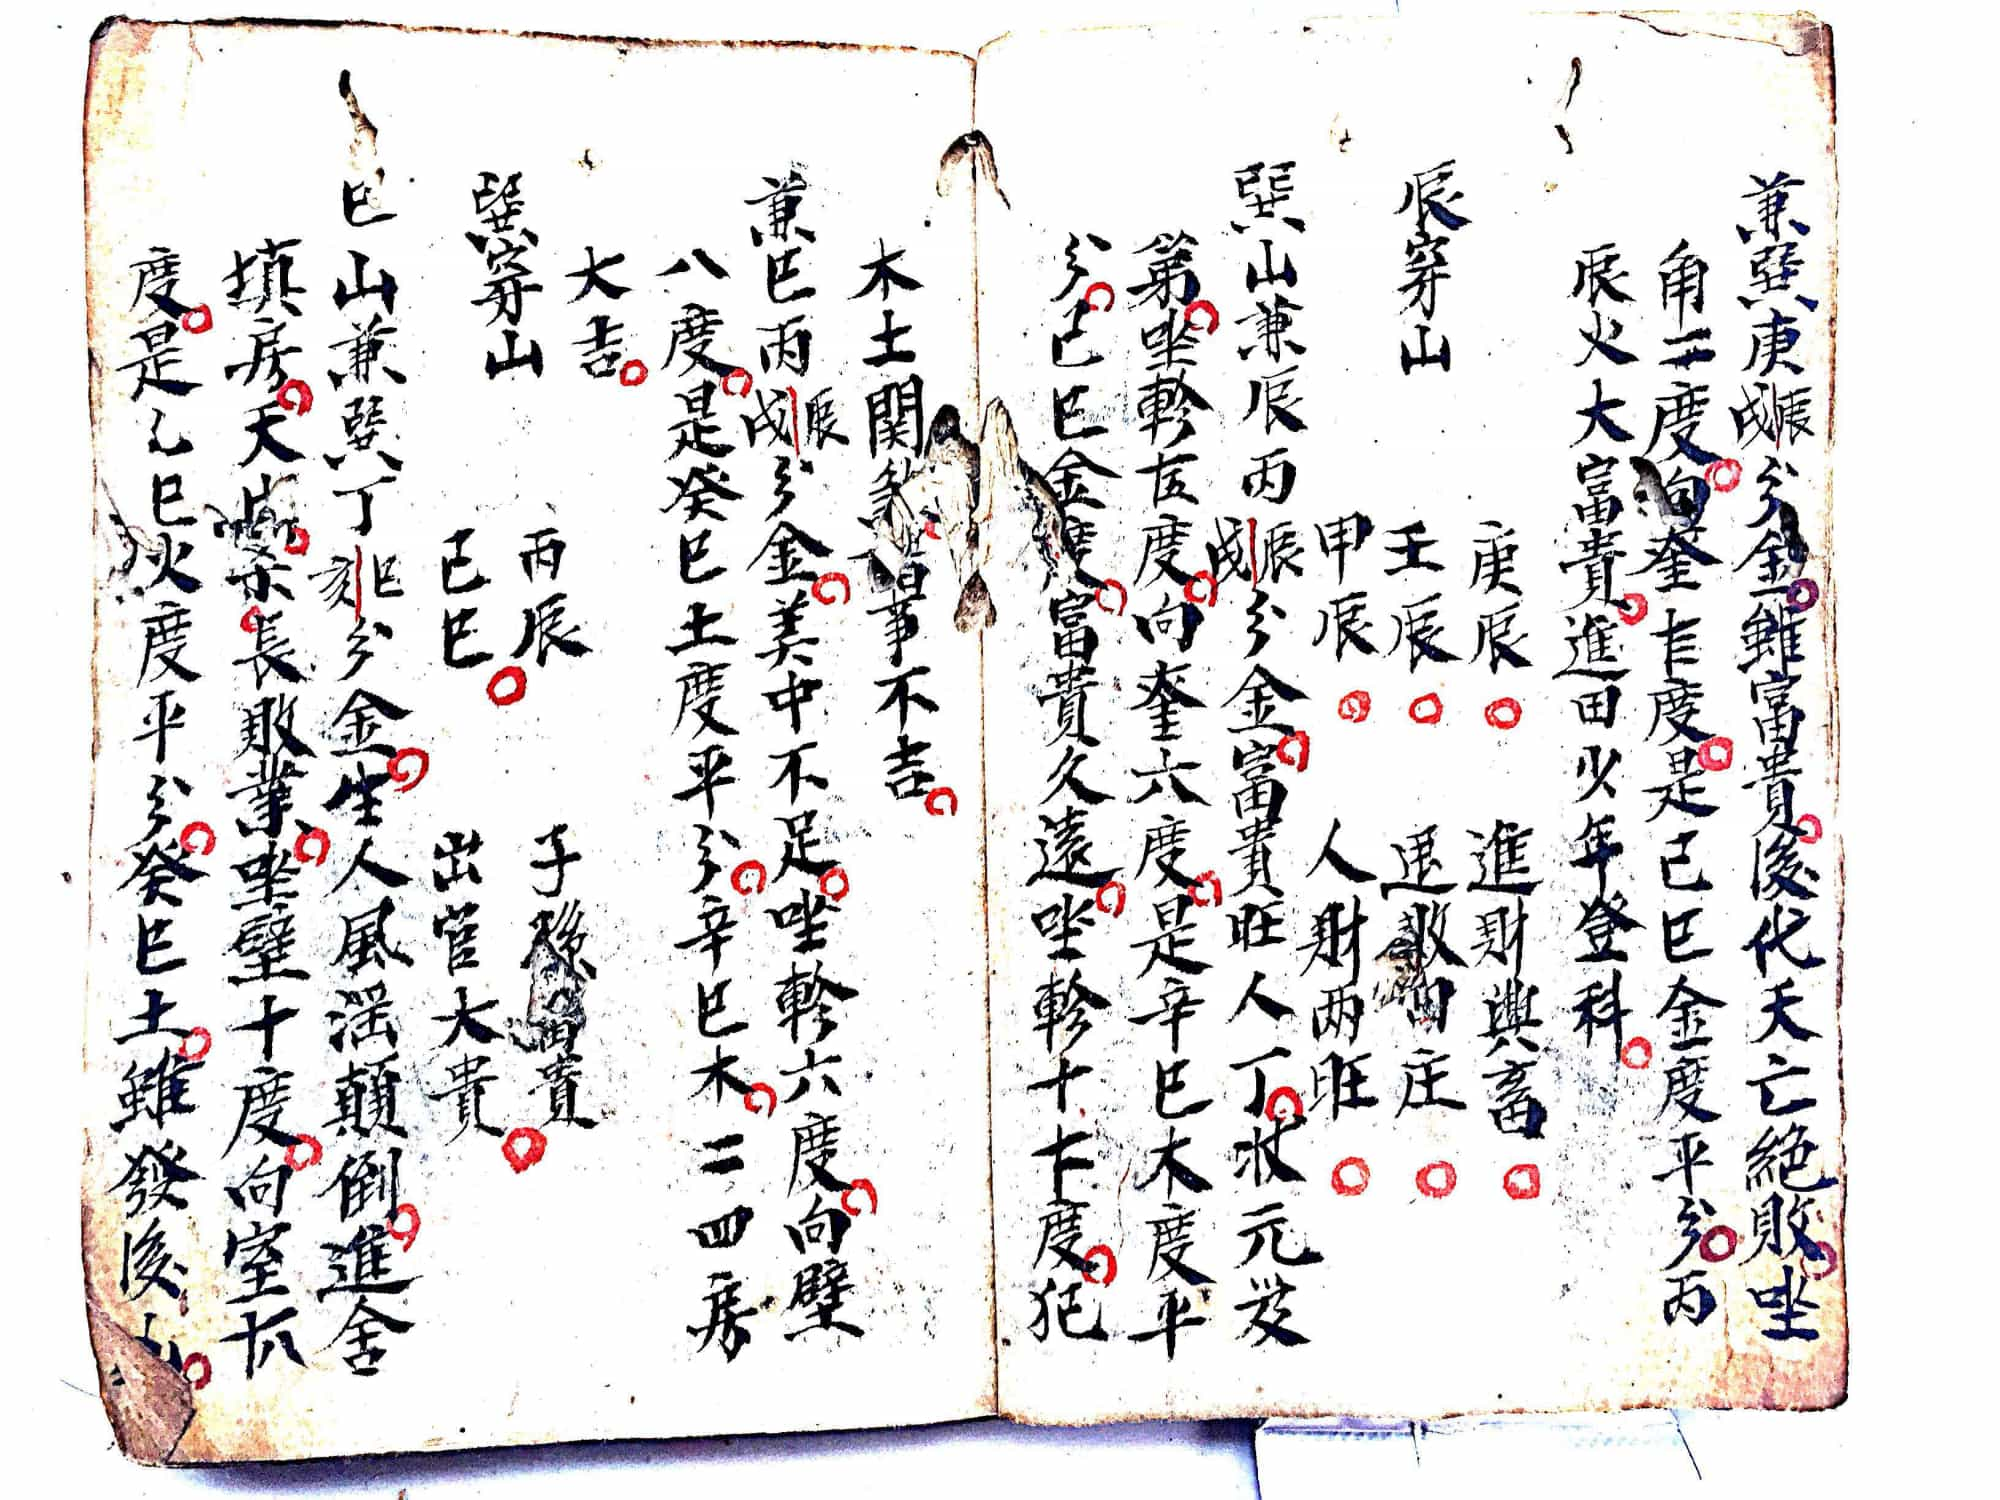 兼巽庚辰戌分金雖富貴後代夭亡絕敗坐
角二度向奎七度是己巳金度平分丙
辰火大富貴進田少年登科
辰穿山
庚辰 進財興畜
壬辰 退敗田庄
甲辰 人財两旺
巽山兼辰丙辰戌分金富貴旺人丁状元发
第坐軫五度向奎六度是辛巳木度平
分己巳金度富貴久遠坐軫十七度犯
木土関煞事不吉
兼巳丙辰戌分金美中不足坐軫六度向壁
八度是癸巳土度平分辛巳木二四房
大吉
巽穿山
丙辰 子孫富貴
己巳 出官大貴
巳山兼巽丁巳亥分金生人風淫顛倒進舍
填房夭長敗業坐壁十度向室十八
度是乙巳火度平分癸巳土雖發後